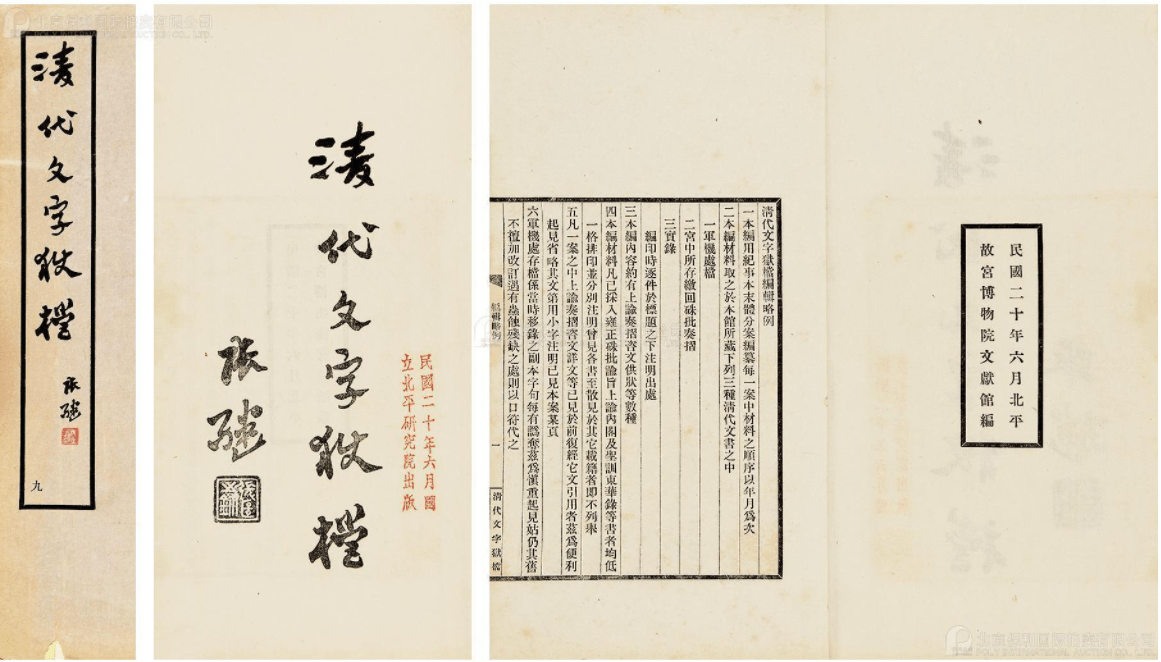 清代文字獄檔
張繼
九
清代文字獄檔
張繼
民國二十年六月國
立北平研究院出版
民國二十年六月北平
故宮博物院文獻館編
清代文字獄檔編輯略例
一本編用紀事本末體分案編纂每一案中材料之順序以年月爲次
二本編材料取之於本館所藏下列三種清代文書之中
一軍機處檔
二宮中所存繳回硃批奏摺
三實錄
編印時逐件於標題之下注明出處
三本編內容約有上諭奏摺咨文供狀等數種
四本編材料凡已採入雍正硃批諭旨上諭內閣及聖訓東華錄等書者均低
一格排印並分別注明曾見各書至散見於其它載籍者卽不列舉
五凡一案之中上諭奏摺咨文詳文等已見於前復經它文引用者茲爲便利
起見省略其文第用小字注明已見本案某頁
六軍機處存檔係當時移錄之副本字句每有譌奪茲爲愼重起見姑仍其舊
不擅加改訂遇有蟲蝕殘缺之處則以口符代之
編輯略例
一
清代文字獄檔
POLY INTERNATIONAL AUCTION CO., LTD.